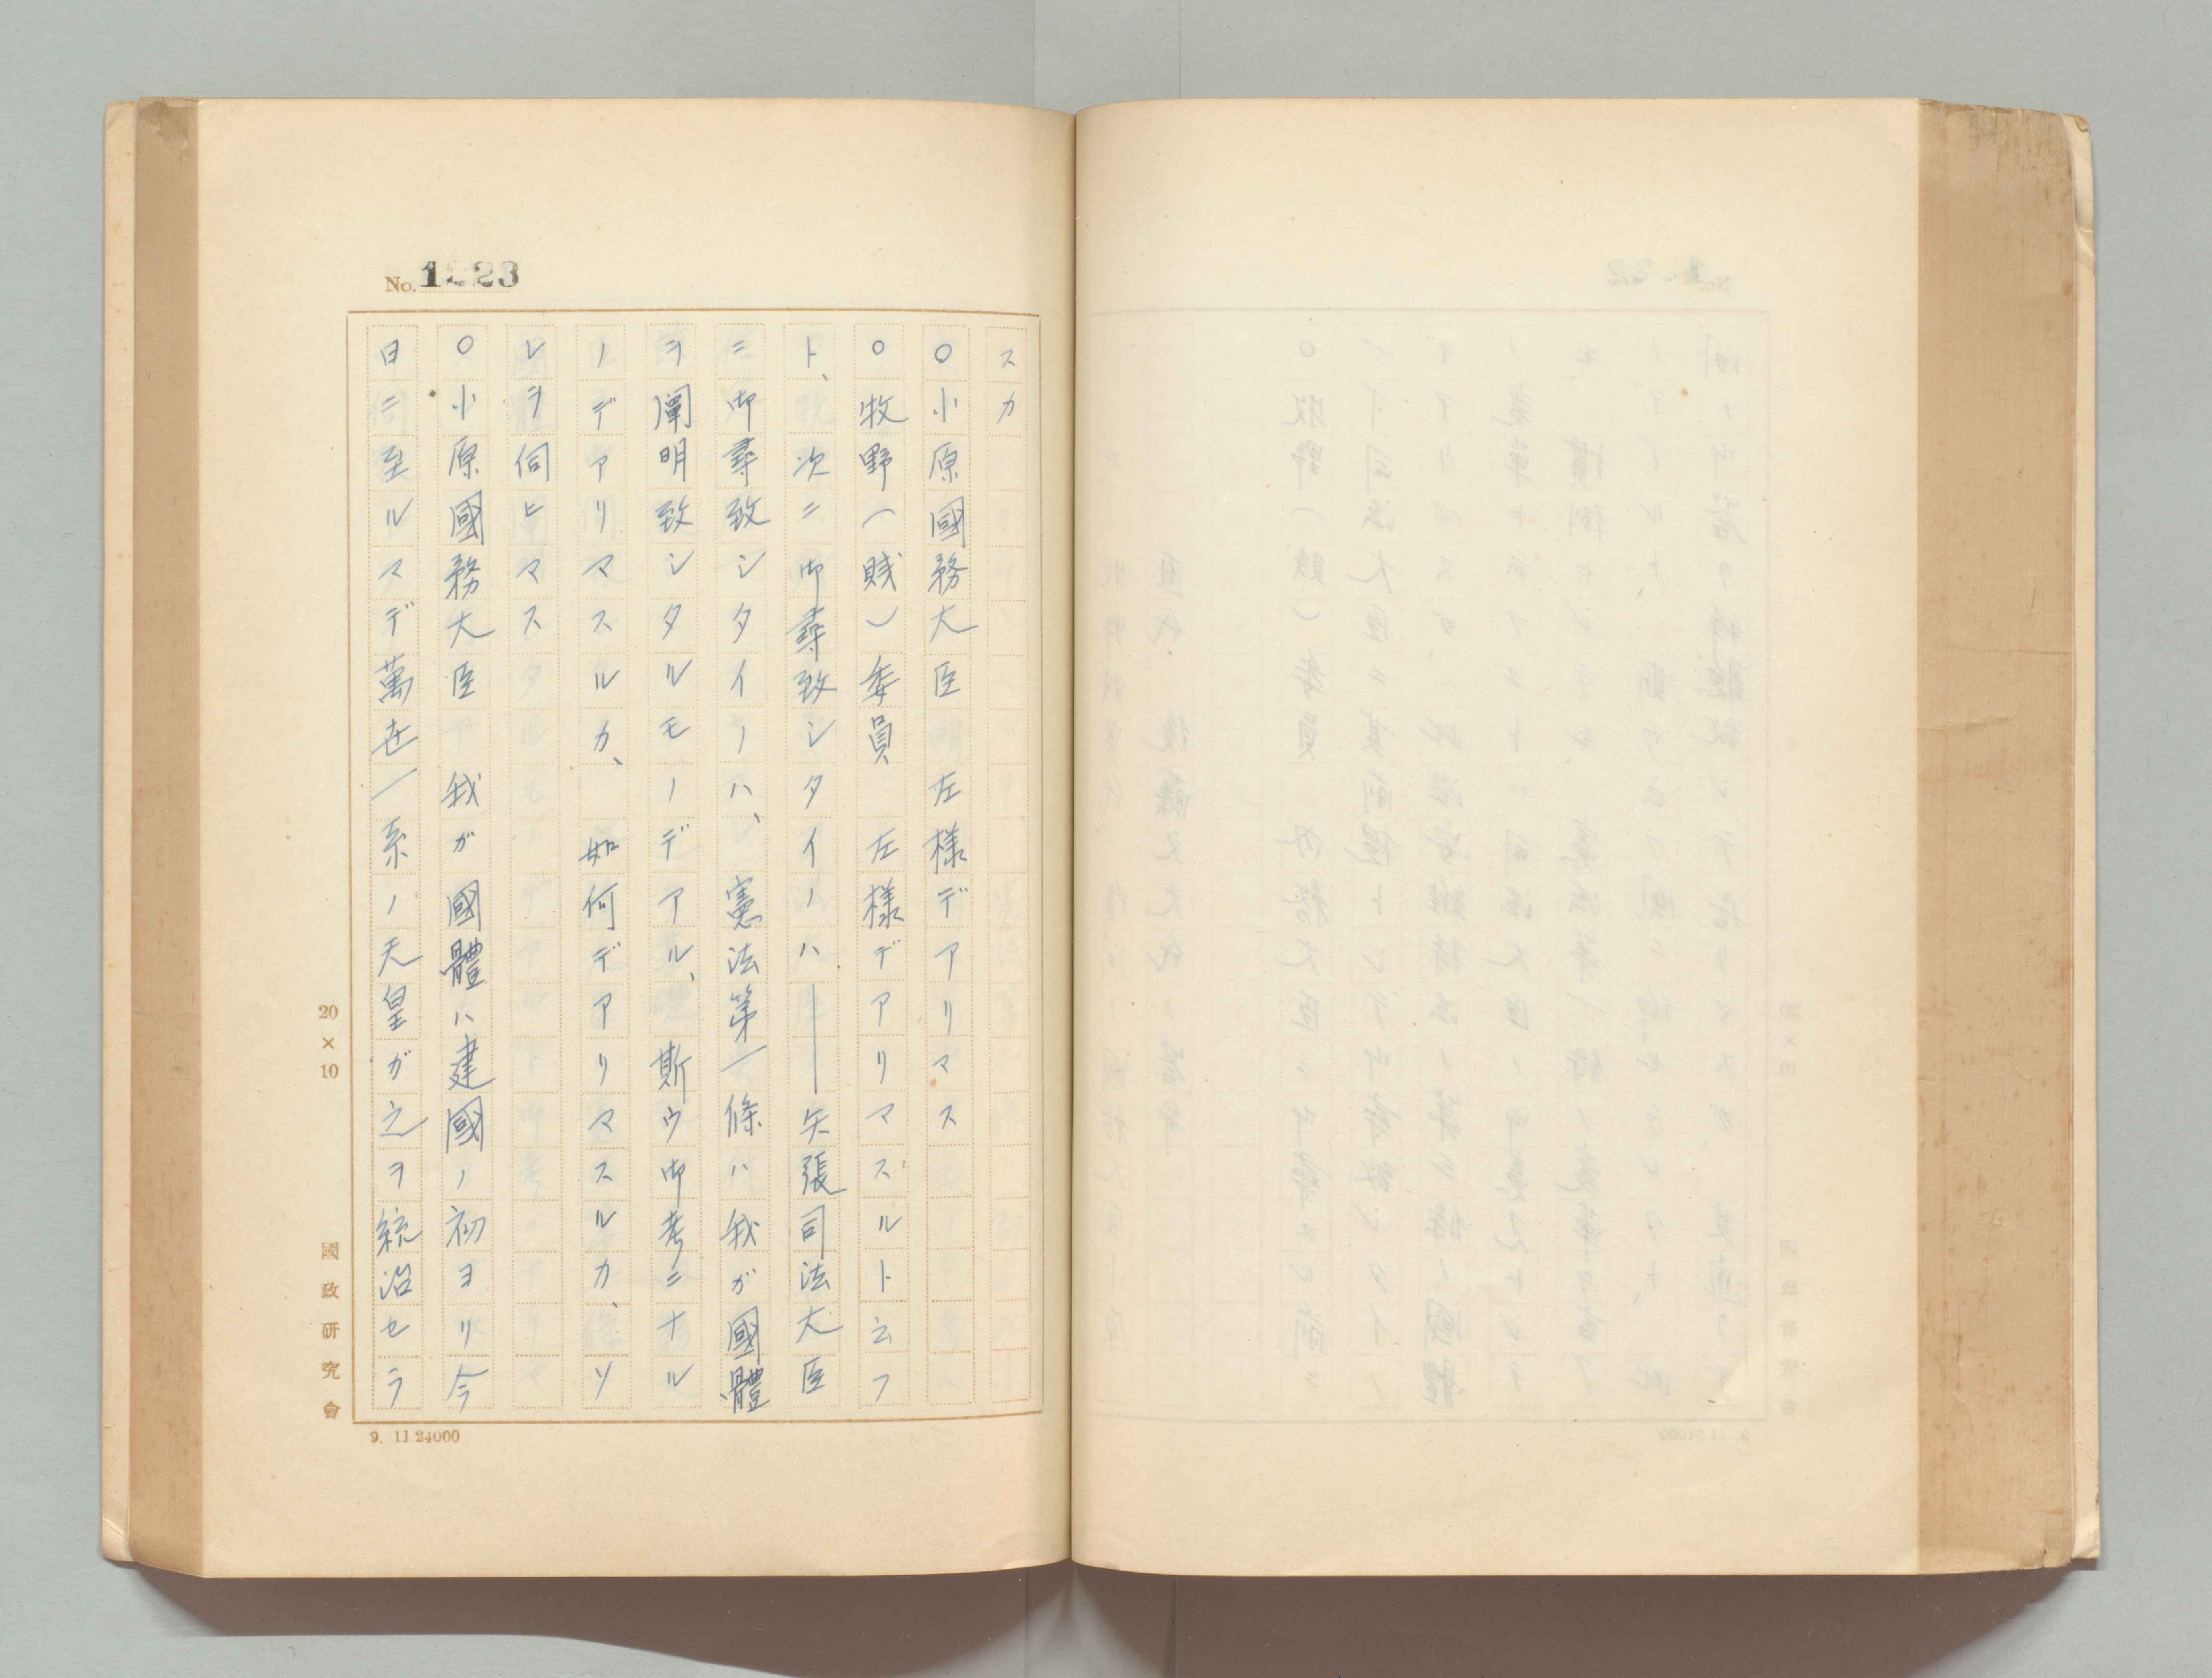 No. 1223
スカ
○小原國務大臣　左様デアリマス
○牧野(賤)委員　左様デアリマスルト云フ
ト、次ニ御尋致シタイノハ――矢張司法大臣
ニ御尋致シタイノハ、憲法第一條ハ我ガ國體
ヲ闡明致シタルモノデアル、斯ウ御考ニナル
ノデアリマスルカ、　如何デアリマスルカ、ソ
レヲ伺ヒマス
○小原國務大臣　我ガ國體ハ建國ノ初ヨリ今
日ニ至ルマデ萬世一系ノ天皇ガ之ヲ統治セラ
20×10
國政研究會
9. 11 24000